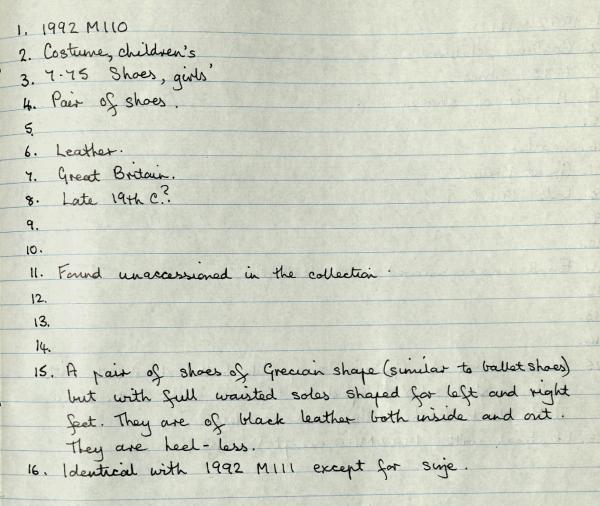 1. 1992 M110
2. Costume, children's
3. 7.75 Shoes, girls'
4. Pair of shoes.
5.
6. Leather.
7. Great Britain.
8. Late 19th C.?
9.
10.
11. Found unaccessioned in the collection.
12.
13.
14.
15. A pair of shoes of Grecian shape (similar to ballet shoes)
but with full waisted soles shaped for left and right
feet. They are of black leather both inside and out.
They are heel-less.
16. Identical with 1992 M111 except for size.